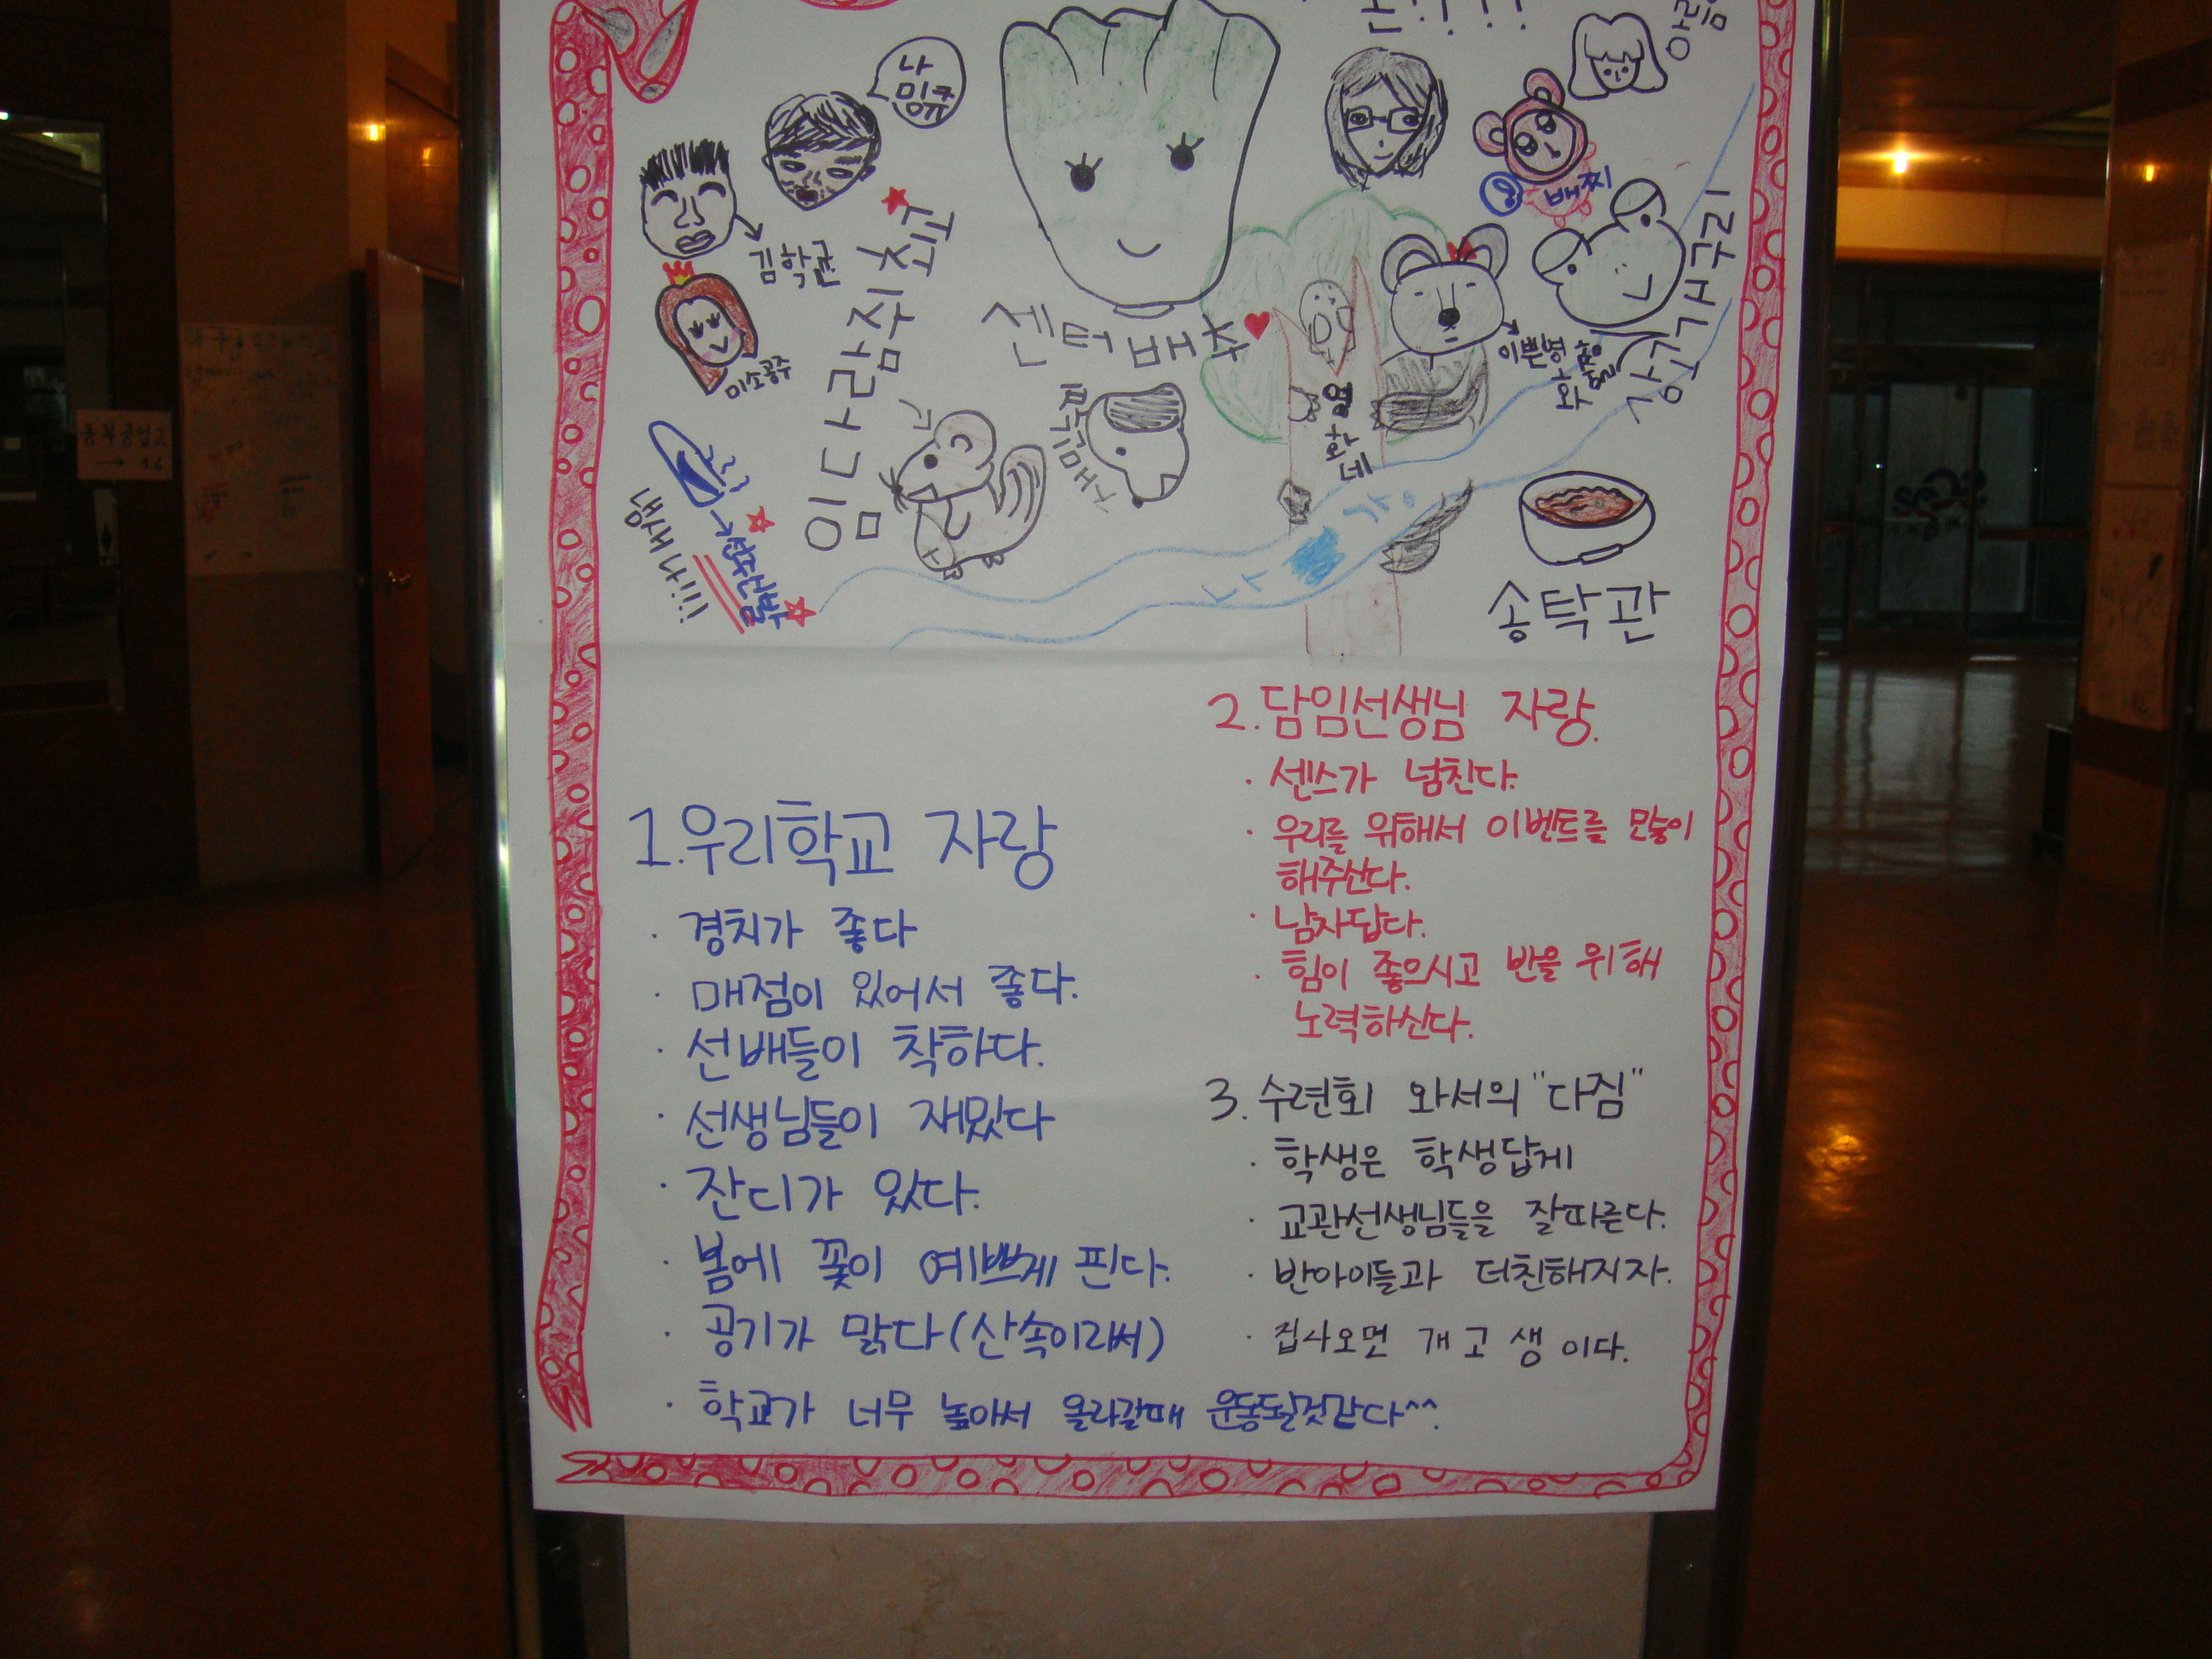 나
밍큐
김학균
미소공주
임다람쥐최고
센터배추
배찌
이쁜명화와
상고개구리
명화네
찍구매
냄새나!!!!
→선주신발
송탁관
1. 우리학교 자랑
· 경치가 좋다
· 매점이 있어서 좋다.
· 선배들이 착하다.
· 선생님들이 재밌다
· 잔디가 있다.
· 봄에 꽃이 예쁘게 핀다.
· 공기가 맑다(산속이라써)
· 학교가 너무 높아서 올라갈때 운동될것같다^^.
2. 담임선생님 자랑.
· 센스가 넘친다.
· 우리를 위해서 이벤트를 많이
해주신다.
· 남자답다.
· 힘이 좋으시고 반을 위해
노력하신다.
3. 수련회 와서의 "다짐"
· 학생은 학생답게
· 교관선생님들을 잘따른다.
· 반아이들과 더친해지자.
· 집나오면 개고생이다.
동부공업고